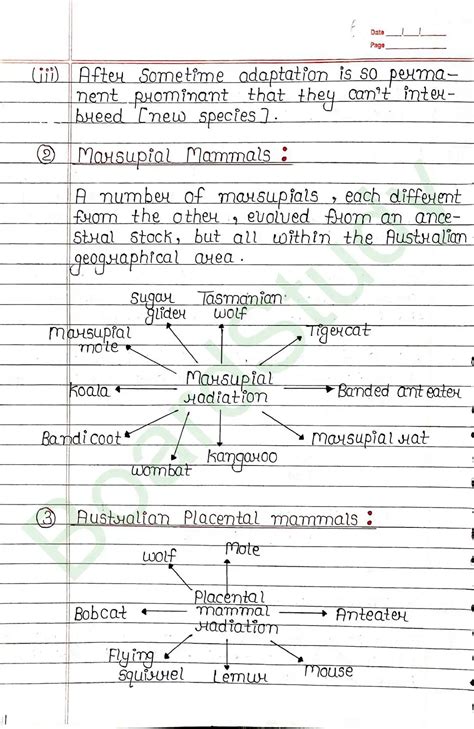 Date
Page
(iii) After sometime adaptation is so perma-
nent prominant that they can't inter-
breed [new species].
② Marsupial Mammals :
A number of marsupials , each different
from the other , evolved from an ance-
stral stock, but all within the Australian
geographical area .
Sugar glider
Tasmanian wolf
Marsupial mole
Tigercat
Koala
Marsupial radiation
Banded anteater
Bandicoot
Marsupial rat
Wombat
Kangaroo
③ Australian Placental mammals :
Wolf
Mole
Bobcat
Placental mammal radiation
Anteater
Flying squirrel
Lemur
Mouse
BoardStudy